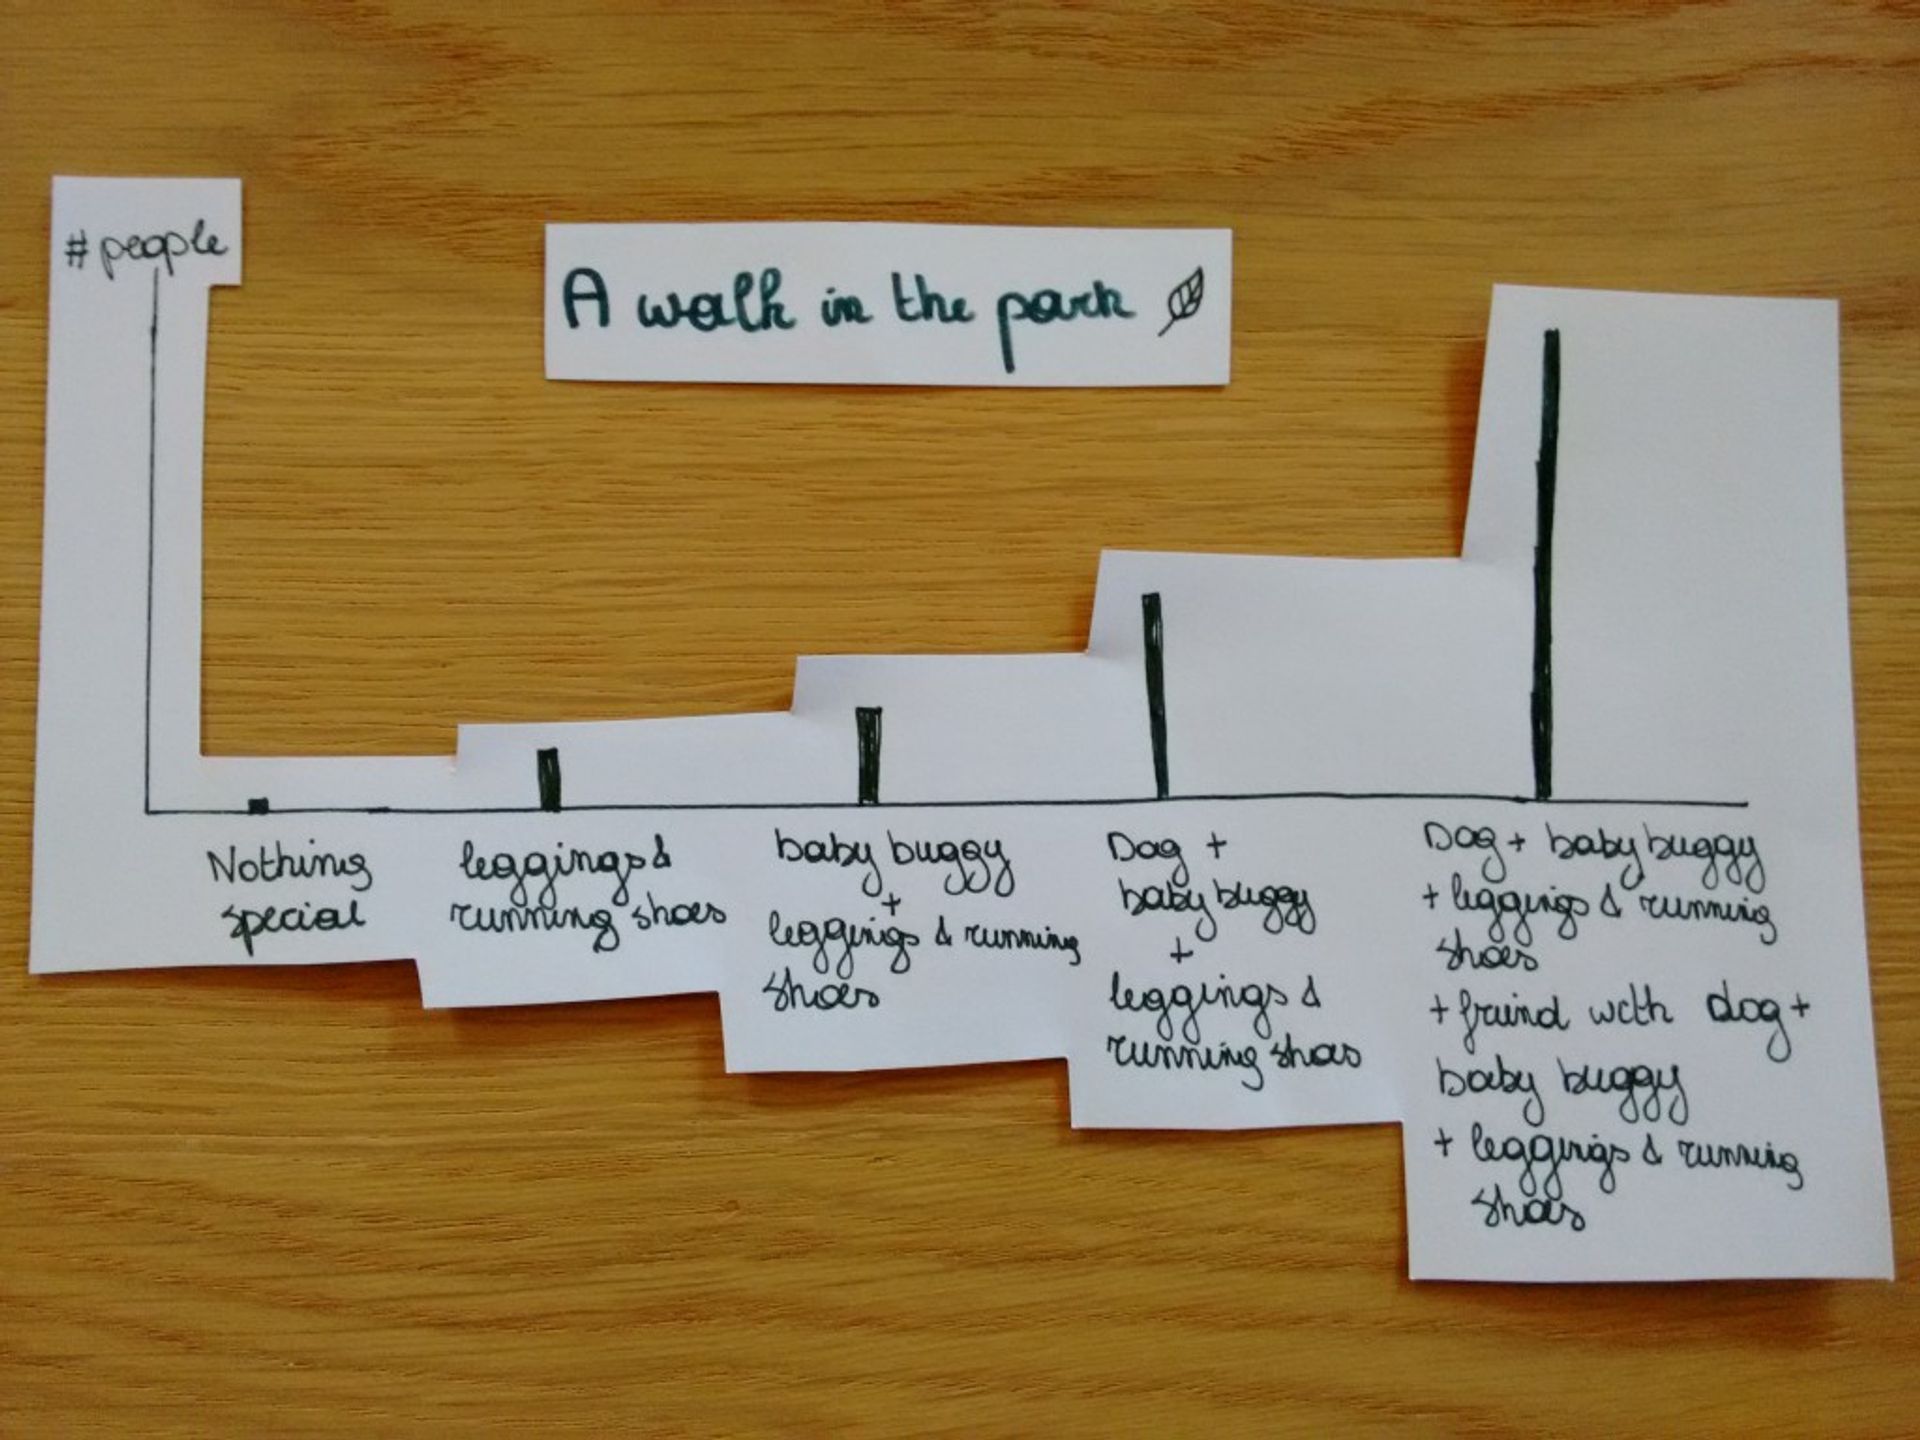 #people
A walk in the park
Nothing
special
leggings &
running shoes
baby buggy
+
leggings & running
shoes
Dog +
baby buggy
+
leggings &
running shoes
Dog + baby buggy
+ leggings & running
shoes
+ friend with dog +
baby buggy
+ leggings & running
shoes